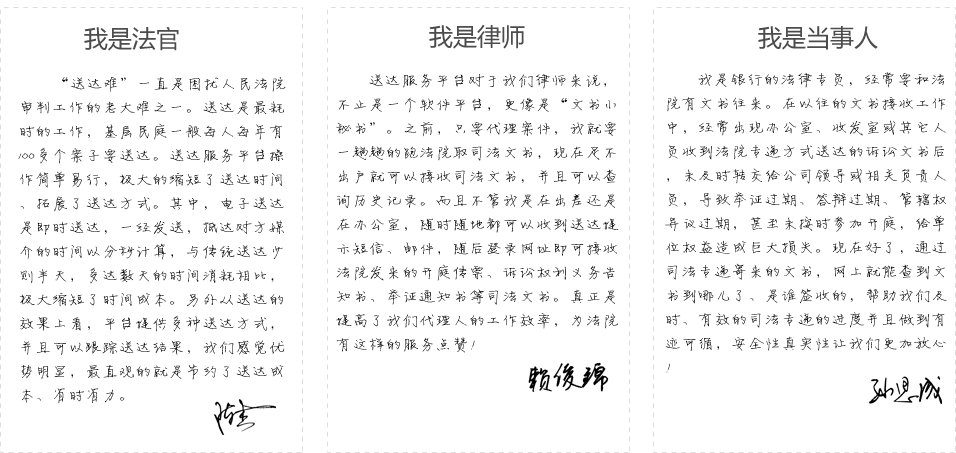 我是法官
“送达难”一直是困扰人民法院
审判工作的老大难之一。送达是最耗
时的工作，基层民庭一般每人每年有
100多个案子要送达。送达服务平台操
作简单易行，极大的缩短了送达时间
、拓展了送达方式。其中，电子送达
是即时送达，一经发送，抵达对方媒
介的时间以分秒计算，与传统送达少
则半天，多达数天的时间消耗相比，
极大缩短了时间成本。另外从送达的
效果上看，平台提供多种送达方式，
并且可以跟踪送达结果，我们感觉优
势明显，最直观的就是节约了送达成
本、省时省力。
我是律师
送达服务平台对于我们律师来说，
不止是一个软件平台，更像是“文书小
秘书”。之前，只要代理案件，我就要
一趟趟的跑法院取司法文书，现在足不
出户就可以接收司法文书，并且可以查
询历史记录。而且不管我是在出差还是
在办公室，随时随地都可以收到送达提
示短信、邮件，随后登录网址即可接收
法院发来的开庭传票、诉讼权利义务告
知书、举证通知书等司法文书。真正是
提高了我们代理人的工作效率，为法院
有这样的服务点赞！
赖俊瑞
我是当事人
我是银行的法律专员，经常要和法
院有文书往来。在以往的文书接收工作
中，经常出现办公室、收发室或其它人
员收到法院专递方式送达的诉讼文书后
，未及时转交给公司领导或相关负责人
员，导致举证过期、答辩过期、管辖权
异议过期，甚至未按时参加开庭，给单
位权益造成巨大损失。现在好了，通过
司法专递寄来的文书，网上就能查到文
书到哪儿了、是谁签收的，帮助我们及
时、有效的司法专递的进度并且做到有
迹可循，安全性真实性让我们更加放心
！
孙思成